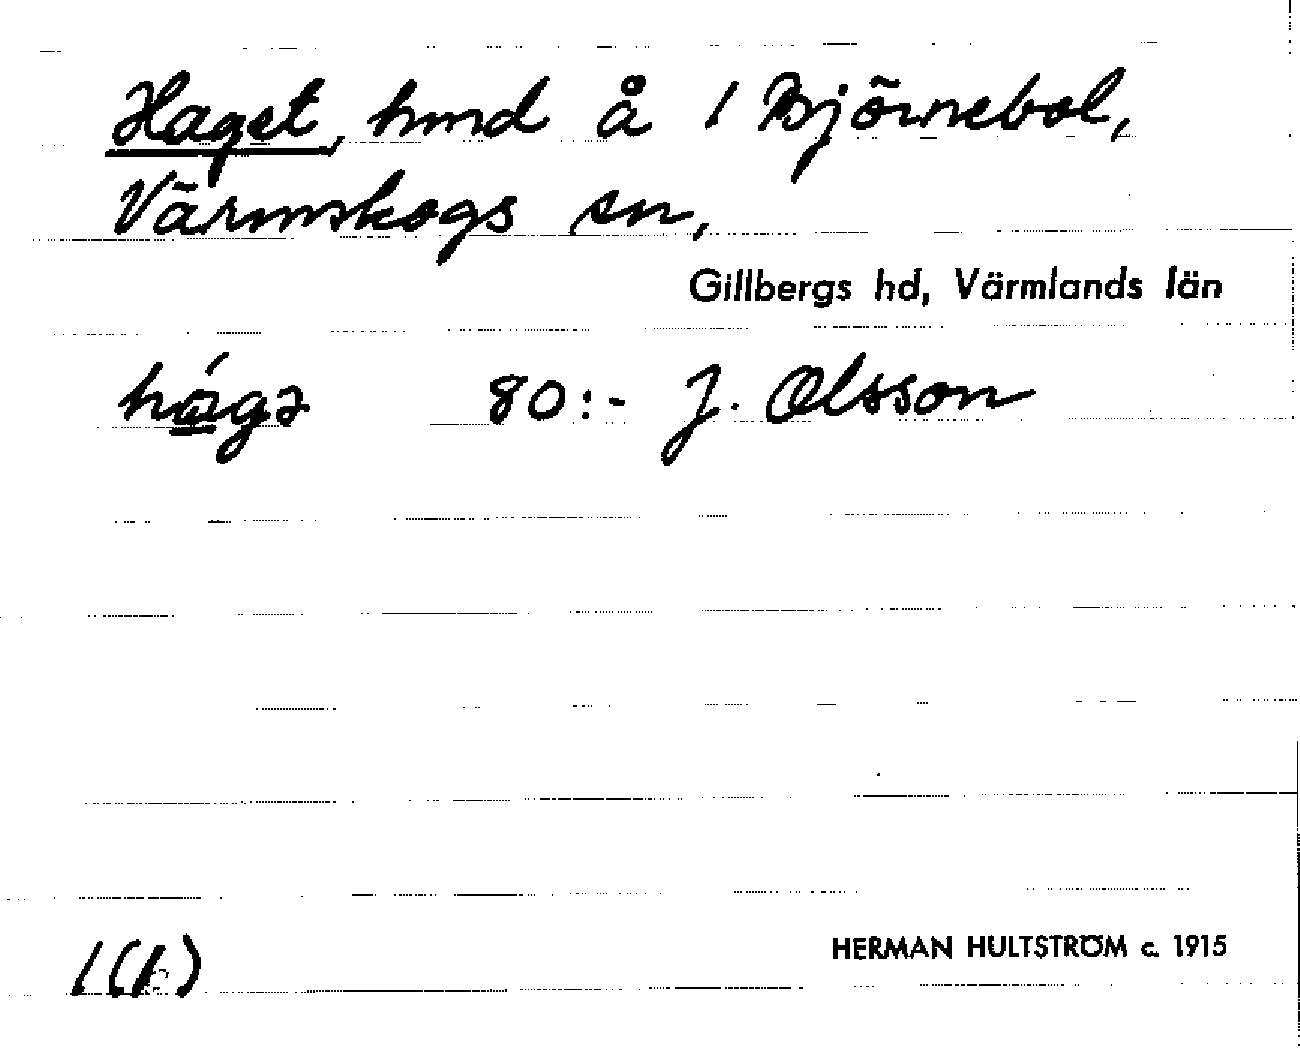 Haget, hmd å 1 Björnebol,
Värmskogs sn,
Gillbergs hd, Värmlands län
hágə 80:- J. Olsson
1(1)
HERMAN HULTSTRÖM c. 1915